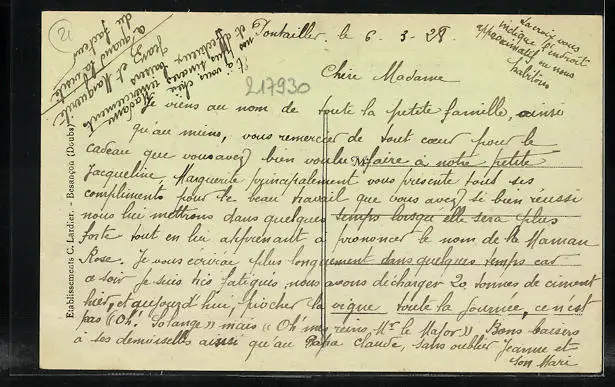 Pontailler, le 6. 3 - 28
Chère Madame
Je viens au nom de toute la petite famille, ainsi
qu'au miens, vous remercier de tout cœur pour le
cadeau que vous avez bien voulu faire à notre petite
Jacqueline, Marguerite principalement vous présente tous ses
compliments pour le beau travail que vous avez si bien réussi
nous lui mettrons dans quelques temps lorsque elle sera plus
forte tout en lui apprenant à prononcer le nom de la Maman
Rose. Je vous écrirai plus longuement dans quelques temps car
ce soir je suis très fatigués, nous avons décharger 20 tonnes de ciment
hier, et aujourd'hui, piocher la vigne toute la journée, ce n'est
pas "Oh! Solange" mais "Oh! mes reins, Mr le Major" Bons baisers
à les demoiselles ainsi qu'au Papa Claude, sans oublier Jeanne et
son Mari
la croix vous
indique l'endroit
approximatif ou nous
habitons
et a vous chère
Madame
nos plus
et affectueux baisers
Jean et Marguerite
a quand la visite
du facteur
217930
21
Etablissements C. Lardier. - Besançon (Doubs)